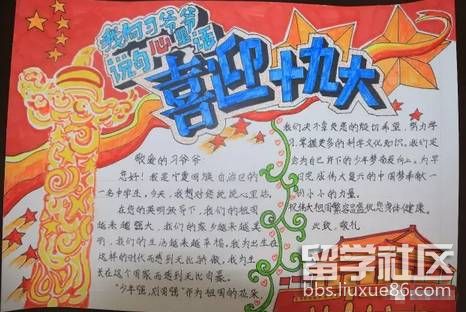 我向习爷爷
说句心里话
喜迎十九大
敬爱的习爷爷
您好！我是宁夏回族自治区的
一名中学生，今天，我想对您说说心里话。
在您的英明领导下，我们的祖国
越来越强大，我们的家乡越来越美
丽，我们的生活越来越幸福，我为出生在
这样的时代而感到无比骄傲，我为生
长在这个国家而感到无比自豪。
"少年强，则国强"作为祖国的花朵，
我们决不辜负您的殷切希望，努力学
习，掌握更多的科学文化知识，我们定
会为自己肩上的少年梦而想而上，为早
日完成伟大复兴的中国梦奉献一
份小小的力量。
祝伟大祖国繁荣昌盛祝您身体健康。
此致，敬礼
留学社区
bbs.liuxue86.com